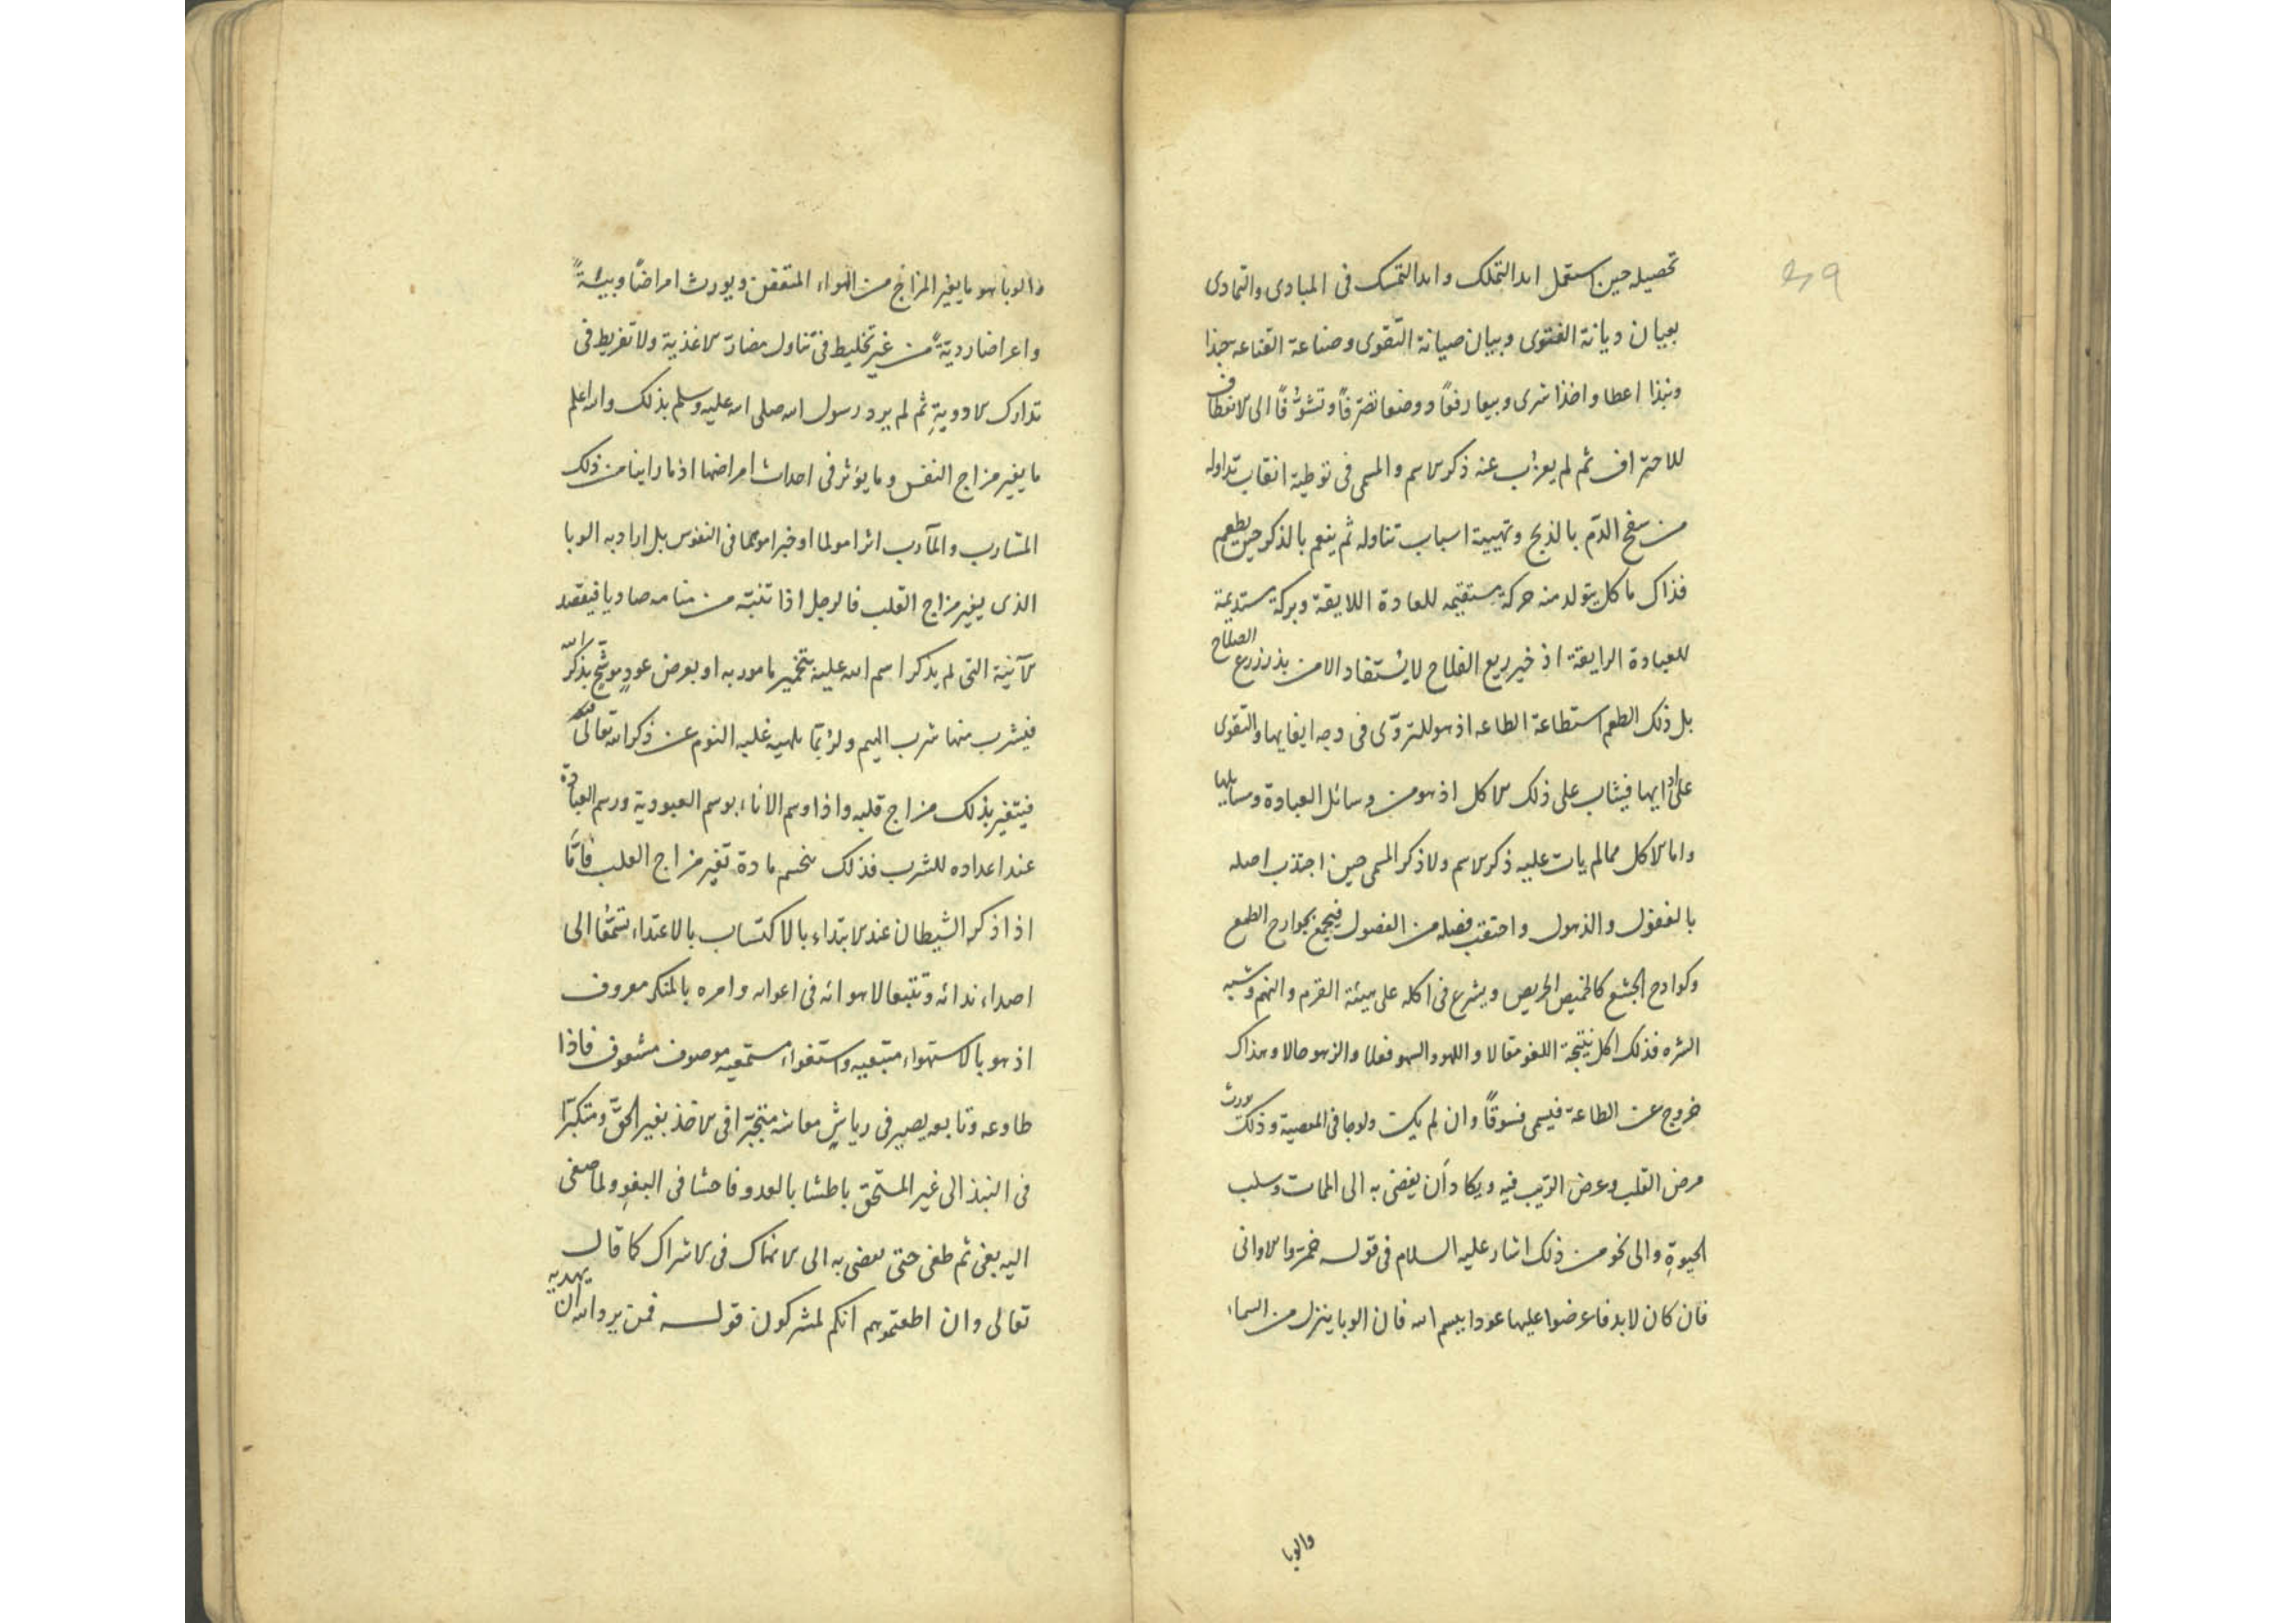 تحصيله حين استعمل ايد التملك وايد التمسك فى المبادى والتمادى
بعيان ديانة الفتوى وبيان صيانة التقوى وصناعة القناعه جبذا
ونبذا اعطا واخذا شرى وبيعا رفعًا ووضعا تصرّفًا وتشوّفًا الى الانعطاف
للاحتراف ثم لم يعزب عنه ذكر الاسم والمسمى فى توطية انقاب تداوله
من سفح الدّم بالذبح وتهيية اسباب تناوله ثم ينعم بالذكر حين يطعم
فذاك ماكل يتولد منه حركة مستقيمه للعادة اللايقة وبركة مستديمة
للعبادة الرايقة اذ خير ريع الفلاح لا يستفاد الا من بذر زرع الصلاح
بل ذلك الطعم استطاعة الطاعه اذ هو للتروّى فى وجه ايفايها والتقوى
على ادايها فيثاب على ذلك الاكل اذ هو من وسائل العبادة وسايلها
واما الاكل مما لم يات عليه ذكر الاسم ولا ذكر المسمى حين اجتذب اصله
بالغفول والذهول واحتقب فضله من الفضول فيجمع بجوارح الطمع
وكوادح الجشع كالخميص الحريص ويشرع فى اكله على هيئة القرم والنهم وشبه
الشره فذلك اكل نتيجة اللغو مقالا واللهو والسهو فعلا والزهو حالا وهذاك
خروج عن الطاعة فيسمى فسوقًا وان لم يكن ولوجا فى المعصية وذلك يورث
مرض القلب وعرض الريب فيه ويكاد أن يفضى به الى الممات وسلب
الحيوةِ والى نحو من ذلك اشار عليه السلام فى قوله خمروا الاوانى
فان كان لابد فاعرضوا عليها عودا ببسم الله فان الوبا ينزل من السماء
والوبا
والوبا هو ما يغير المزاج من الهواء المتعفن ويورث امراضًا وبيئةً
واعراضا رديّةً من غير تخليط فى تناول مضادّ الاغذية ولا تفريط فى
تدارك الادويةِ ثم لم يرد رسول الله صلى الله عليه وسلم بذلك والله اعلم
ما يغير مزاج النفس وما يوثر فى احداث امراضها اذ ما راينا من ذلك
المشارب والمآدب اثرا مولما او خيرا موهما فى النفوس بل اراد به الوبا
الذى يغير مزاج القلب فالرجل اذا تنبّه من منامه صاديا فيقصد
الآنية التى لم يذكر اسم الله عليه بتخمير مامور به او بعرض عودٍ موشّح بذكر الله
فيشرب منها شرب الهيم ولربّما يلهيه غلبه النوم عن ذكر الله تعالى فيه
فيتغير بذلك مزاج قلبه واذا وسم الاناء بوسم العبودية ورسم العبادة
عند اعداده للشرب فذلك ينحسم مادة تغير مزاج القلب فامّا
اذا ذكر الشيطان عند الابتداء بالاكتساب بالاعتداء تسمّعا الى
اصداء ندائه وتتبعا لاهوائه فى اعوانه وامره بالمنكر معروف
اذ هو بالاستهواء متبعيه واستغواء مستمعيه موصوف مشعوف فاذا
طاوعه وتابعه يصير فى رياشٍ معاشه متجبّرا فى الاخذ بغير الحقّ ومتكبّرا
فى النبذ الى غير المستحق باطشا بالعدو فاحشا فى البغوِ ولما صغى
اليه بغى ثم طغى حتى يفضى به الى الانهماك فى الاشراك كما قال
تعالى وان اطعتموهم انكم لمشركون قوله فمن يرد الله ان يهديه